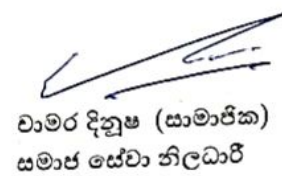 චාමර දිනූෂ (සාමාජික)
සමාජ සේවා නිලධාරී